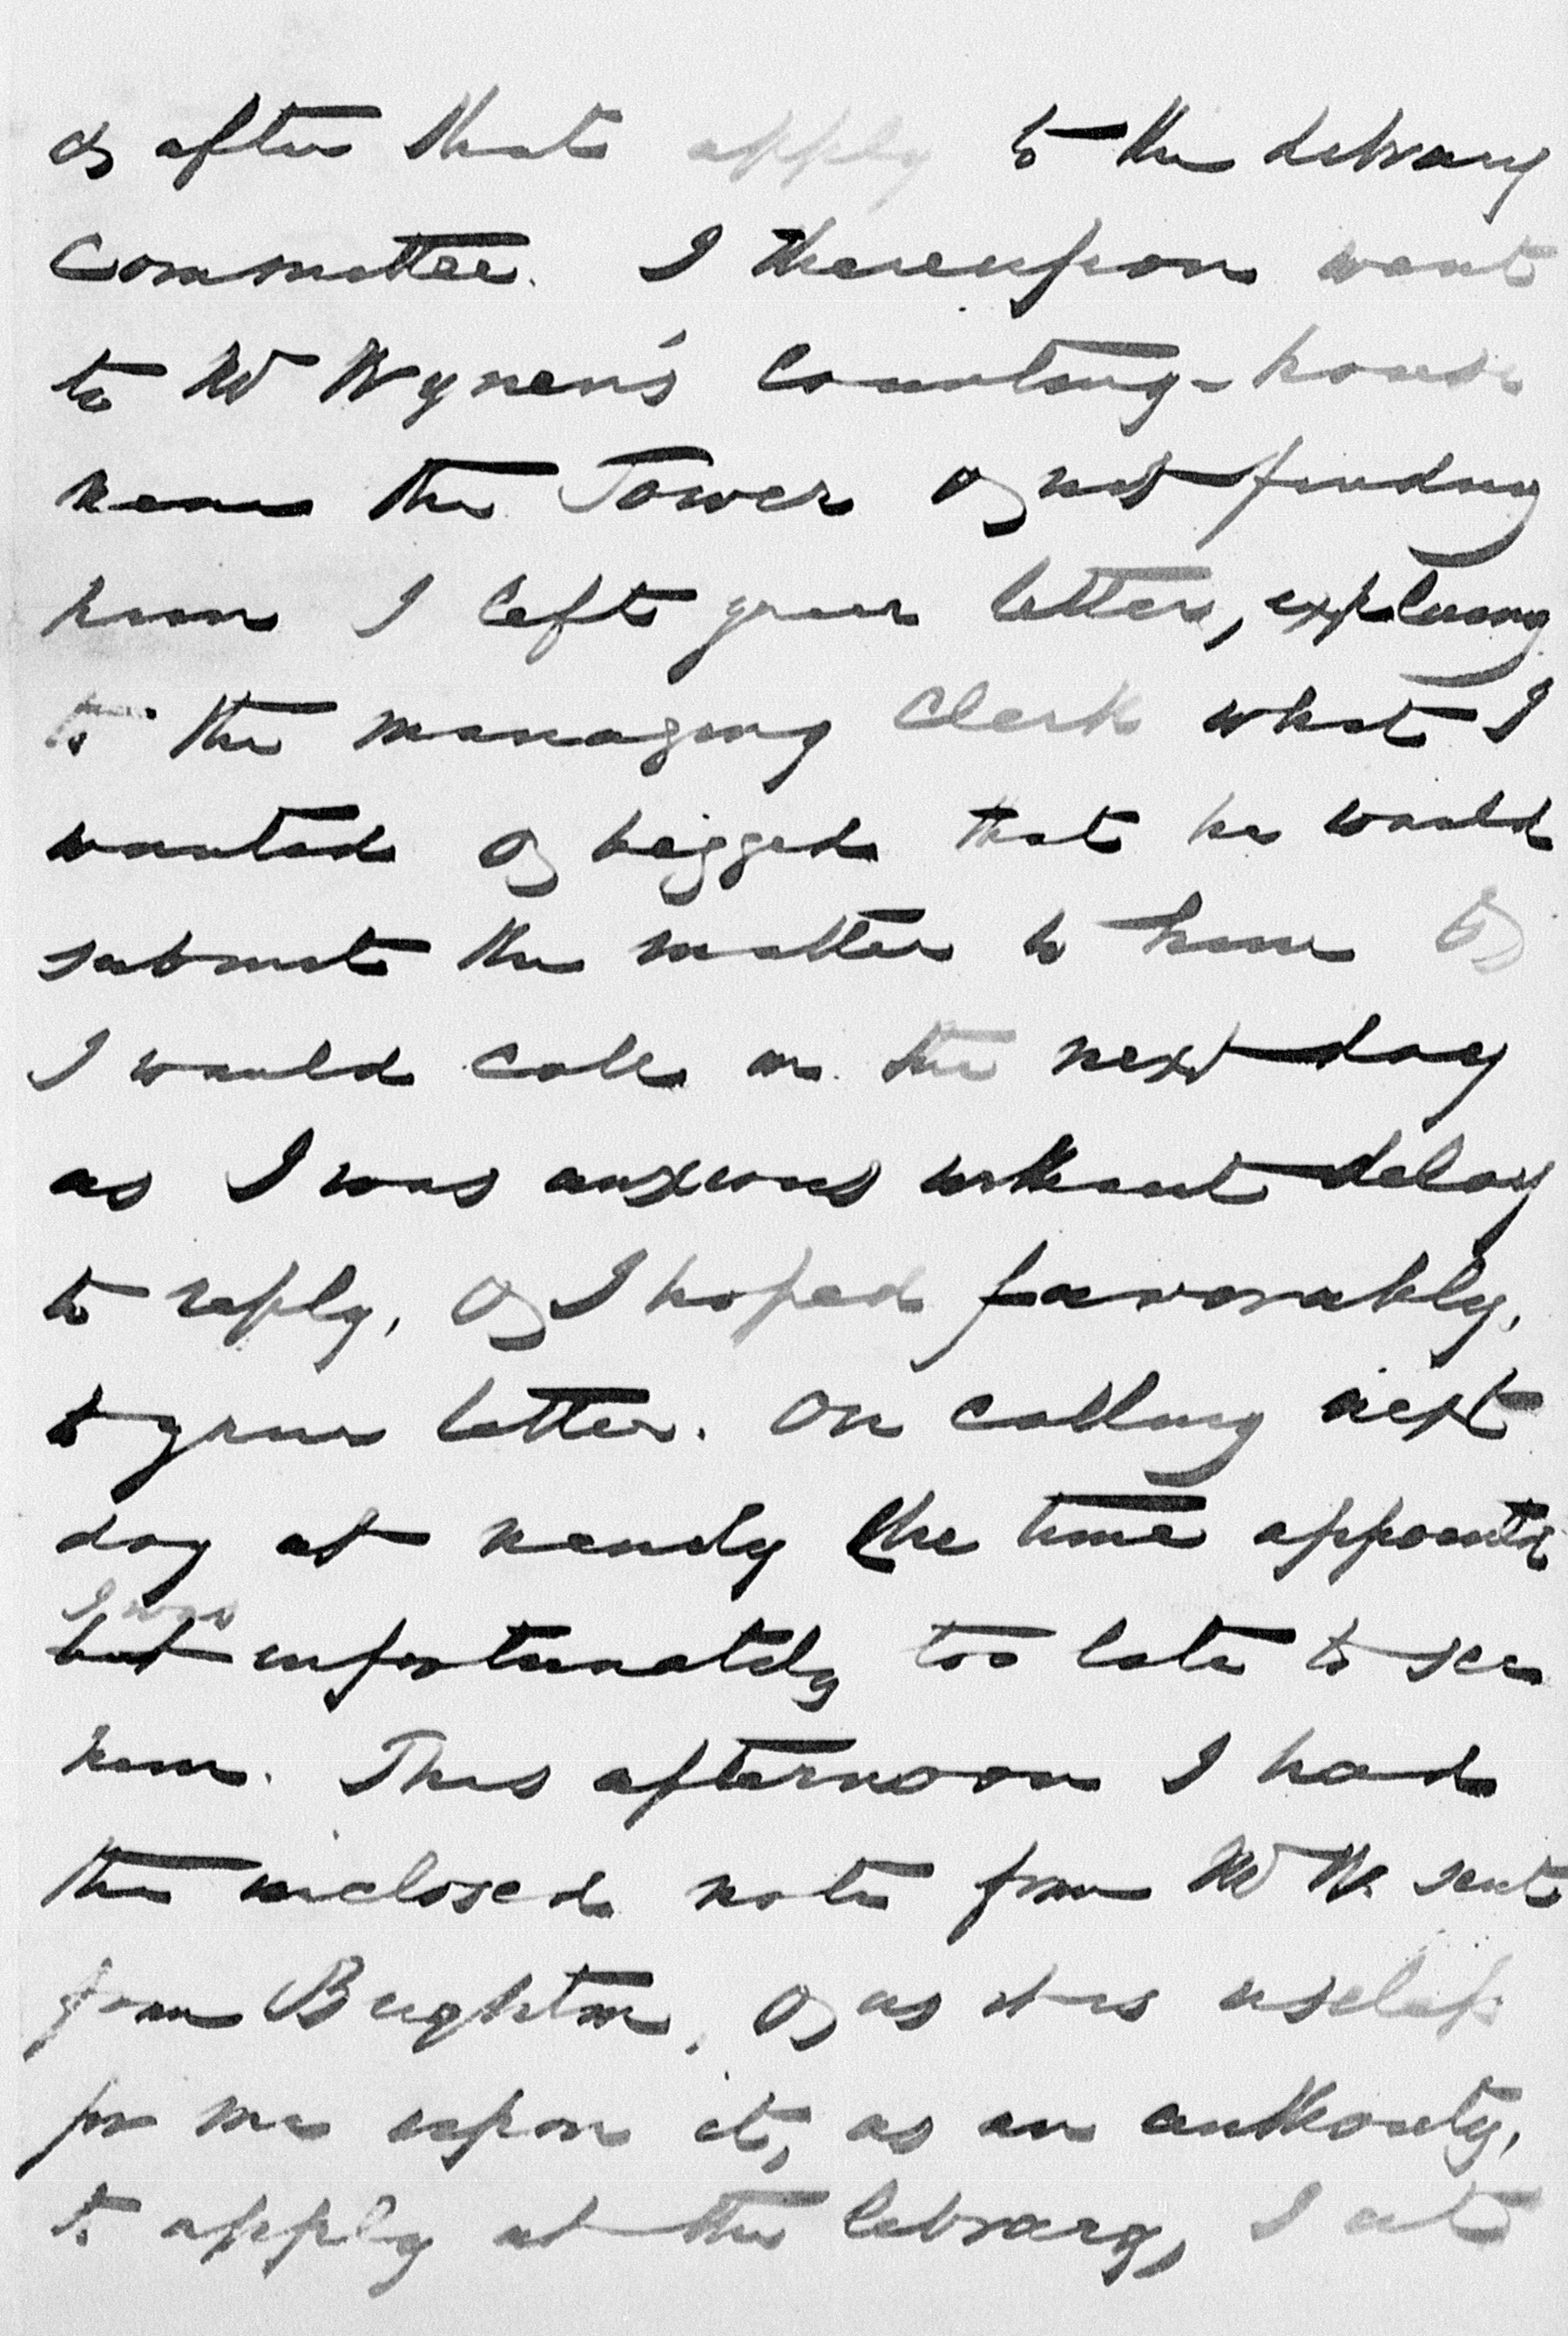 & after that apply to the Library
Committee. I thereupon went
to Mr Wynen's Counting-house
near the Tower & not finding
him I left your letter, explaing
to the managing Clerk what I
wanted & begged that he would
submit the matter to him &
I would call on the next day
as I was anxious without delay
to reply, & I hoped favorably,
to your letter. On calling next
day at nearly the time appointd
I was
but unfortunately too late to see
him. This afternoon I had
the inclosed note from Mr W. sent
from Brighton, & as it is useless
for me upon it, as an authority,
to apply at the library, I at